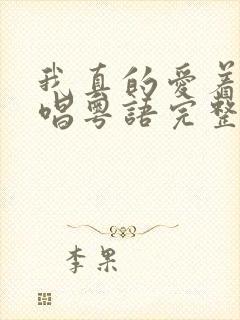 我真的愛着
唱粵語完整
李果